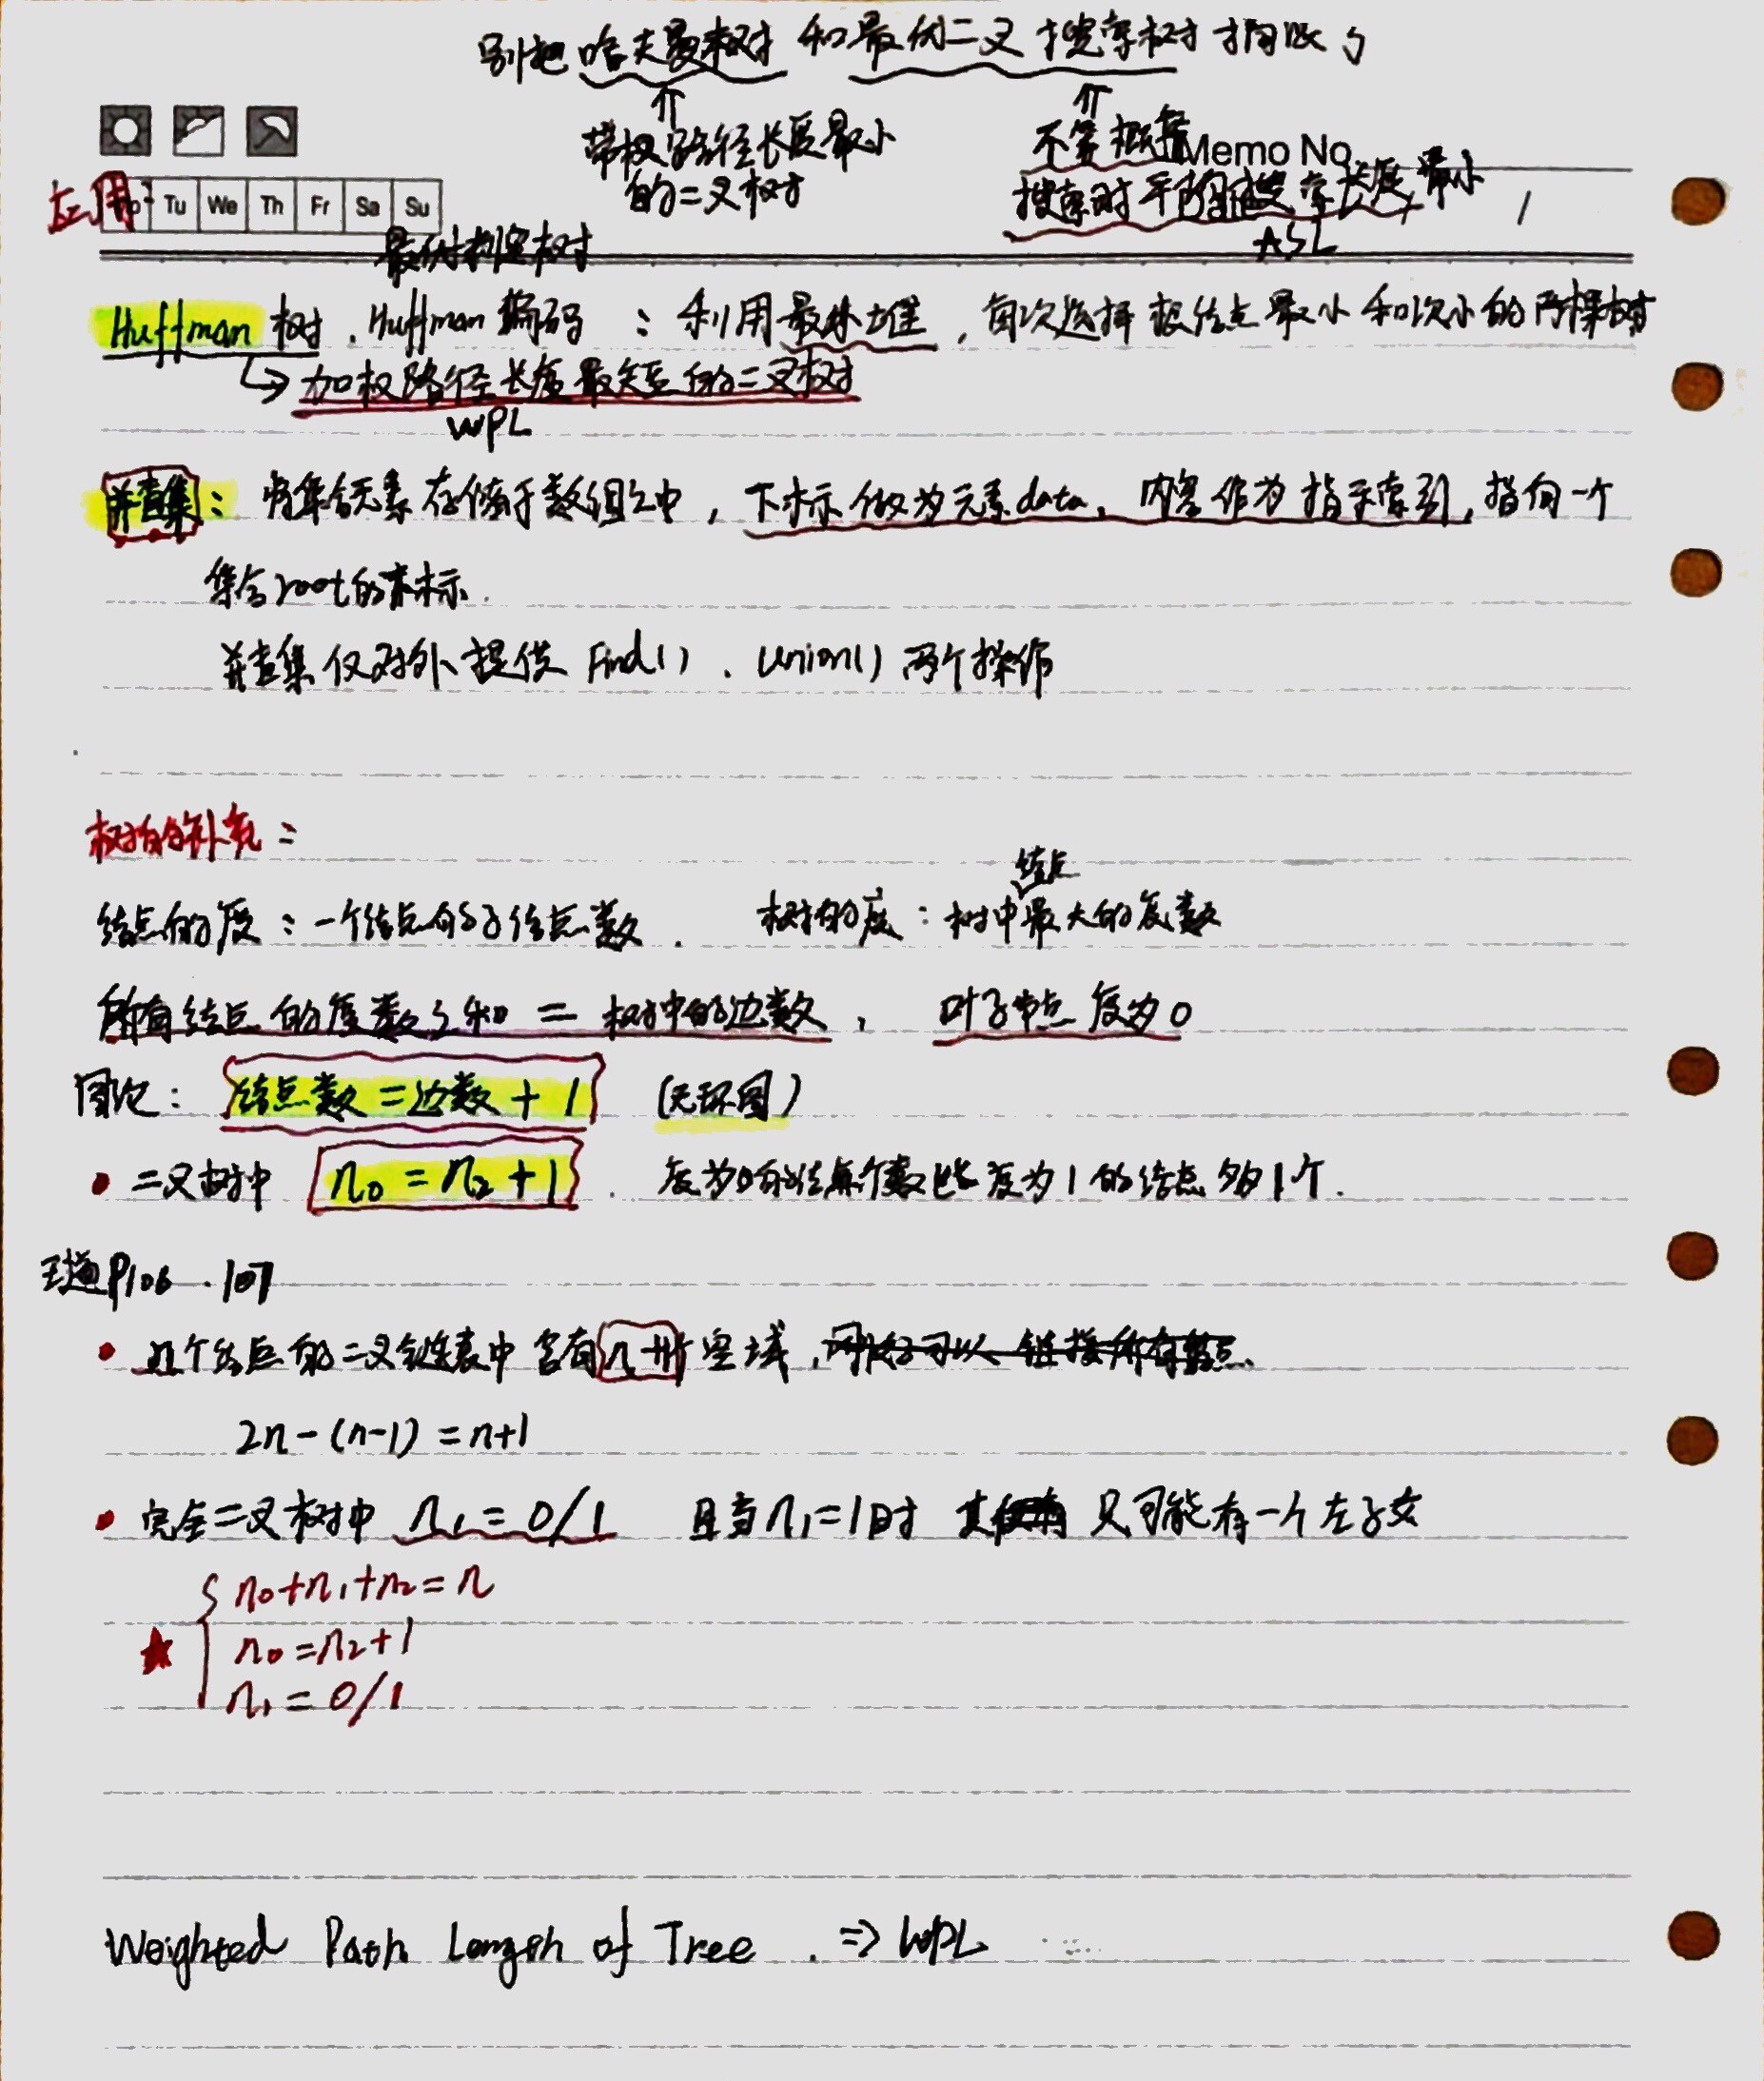 别把哈夫曼树和最优二叉搜索树搞混了
⇑ ⇑
带权路径长度最小
的二叉树
不等概率
搜索时平均搜索长度最小
ASL
Memo No.
/
应用
Mo Tu We Th Fr Sa Su
最优判定树
Huffman 树．Huffman 编码：利用最小堆，每次选择根结点最小和次小的两棵树
↳ 加权路径长度最短的二叉树
WPL
并查集：将集合元素存储于数组之中，下标做为元素data，内容作为指示索引，指向一个
集合root的下标.
并查集仅对外提供 Find()．Union() 两个操作
树的补充：
结点
结点的度：一个结点的子结点数． 树的度：树中最大的度数
所有结点的度数之和＝树中的边数， 叶子节点度为0
图论：结点数＝边数＋1 (无环图)
• 二叉树中 n₀ = n₂ + 1 . 度为0的结点个数比度为1的结点多1个.
王道P106．107
• n个结点的二叉链表中含有n+1个空域，刚好可以链接所有节点.
2n-(n-1)=n+1
• 完全二叉树中 n₁ = 0/1 且当n₁=1时 其 只可能有一个左子女
{ n₀+n₁+n₂=n
★ n₀=n₂+1
n₁=0/1
Weighted Path Length of Tree . ⇒ WPL